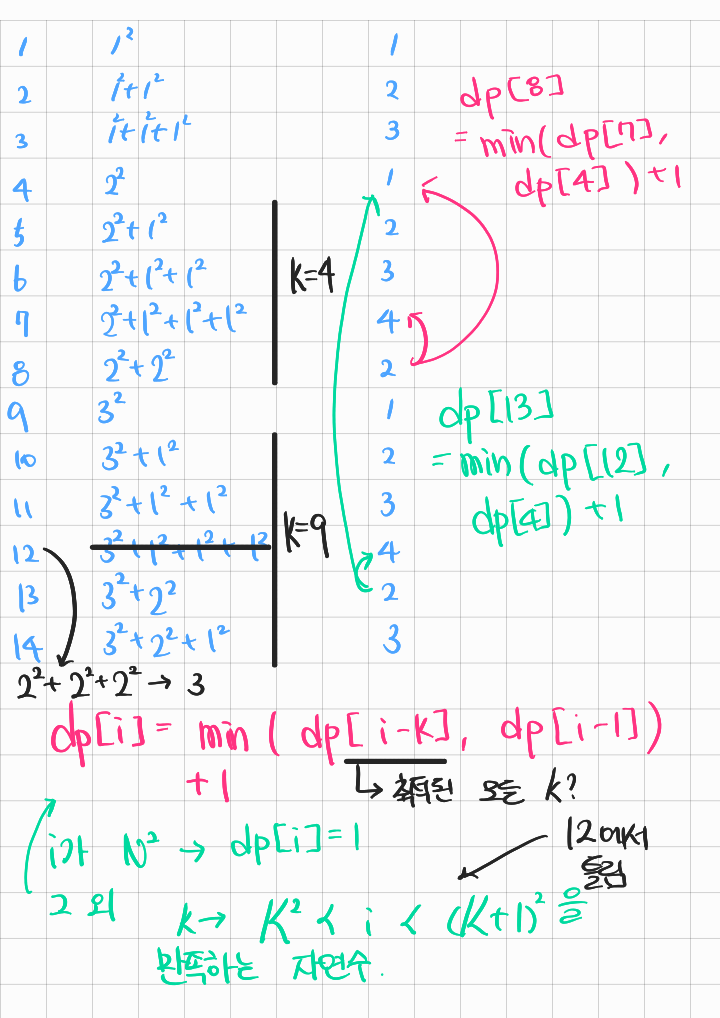 1 1² 1
2 1²+1² 2
3 1²+1²+1² 3
4 2² 1
5 2²+1² 2
6 2²+1²+1² 3
7 2²+1²+1²+1² 4
8 2²+2² 2
9 3² 1
10 3²+1² 2
11 3²+1²+1² 3
12 3²+1²+1²+1² 4
13 3²+2² 2
14 3²+2²+1² 3
k=4
k=9
dp[8]
=min(dp[7],
dp[4])+1
dp[13]
=min(dp[12],
dp[4])+1
2²+2²+2² → 3
dp[i]= min ( dp[i-k], dp[i-1])
+1
↳ 모든 k?
i가 N² → dp[i]=1
12에서
틀림
그 외
k→ K² < i < (K+1)² 을
만족하는 자연수.